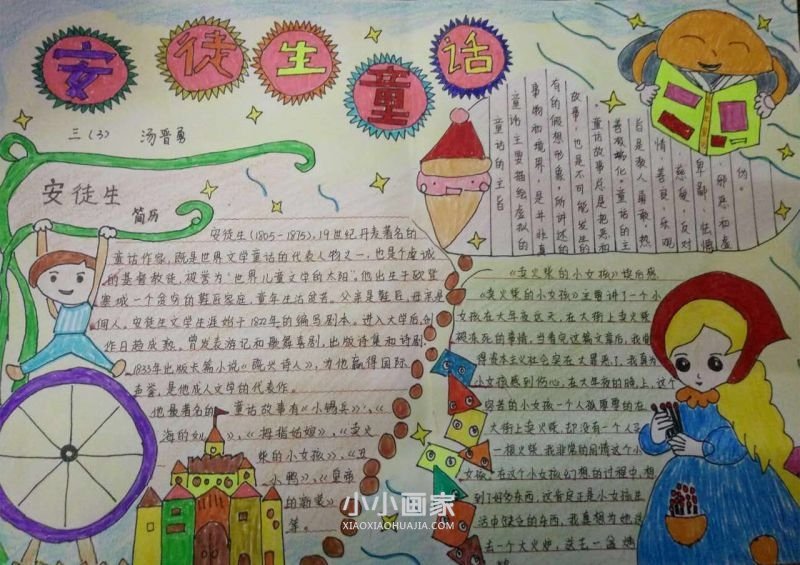 安徒生童话
三(3) 汤晋勇
安徒生
简历
安徒生(1805-1875),19世纪丹麦著名的
童话作家,既是世界文学童话的代表人物之一,也是个虔诚
的基督教徒,被誉为“世界儿童文学的太阳”。他出生于欧登
塞城一个贫穷的鞋匠家庭,童年生活贫苦。父亲是鞋匠,母亲是
佣人。安徒生文学生涯始于1822年的编写剧本。进入大学后,创
作日趋成熟。曾发表游记和歌舞喜剧,出版诗集和诗剧
1833年出版长篇小说《即兴诗人》,为他赢得国际
声誉,是他成人文学的代表作。
他最著名的童话故事有《小锡兵》、《
海的女儿》、《拇指姑娘》、《卖火
柴的小女孩》、《丑
小鸭》、《皇帝
的新装》
等。
童话的主旨
童话主要描绘虚拟的
事物和境界,是并非真
有的假想形象,所讲述的
故事,也是不可能发生的
。童话故事总是把恶和
善极端化。童话的主
旨是教人勇敢,热
情,善良,乐观
慈爱,反对
卑鄙,怯懦
邪恶和虚
伪。
《卖火柴的小女孩》读后感
《卖火柴的小女孩》主要讲了一个小
女孩在大年夜这天,在大街上卖火柴
被冻死的事情。当看完这篇文章后,我觉
得资本主义社会实在太黑了,我真为
小女孩感到伤心,在大年夜的晚上,这个
穷苦的小女孩一个人孤零零的在
大街上卖火柴,却没有一个人
一根火柴,我非常的同情这个小
女孩,在这个小女孩幻想的过程中,想
到了好多东西,这肯定正是小女孩生
活中缺乏的东西,我真想为她送
去一个大火炉,送去一盒
小小画家
XIAOXIAOHUAJIA.COM